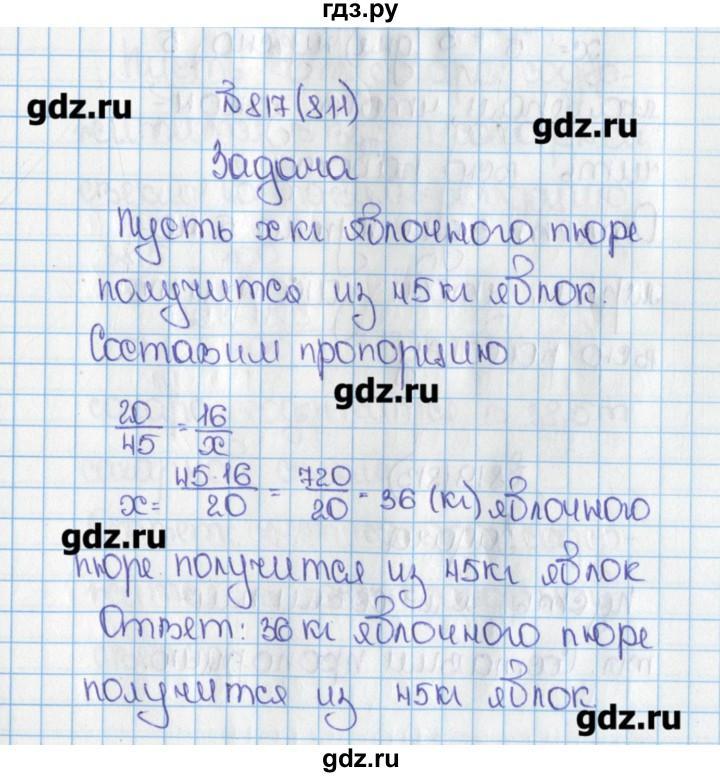 гдз.ру
№817(811)
gdz.ru
gdz.ru
Задача
Пусть х кг яблочного пюре
получится из 45 кг яблок.
Составим пропорцию
gdz.ru
20/45 = 16/х
х = 45·16/20 = 720/20 = 36 (кг) яблочного
gdz.ru
пюре получится из 45кг яблок
Ответ: 36 кг яблочного пюре
получится из 45кг яблок
gdz.ru
gdz.ru